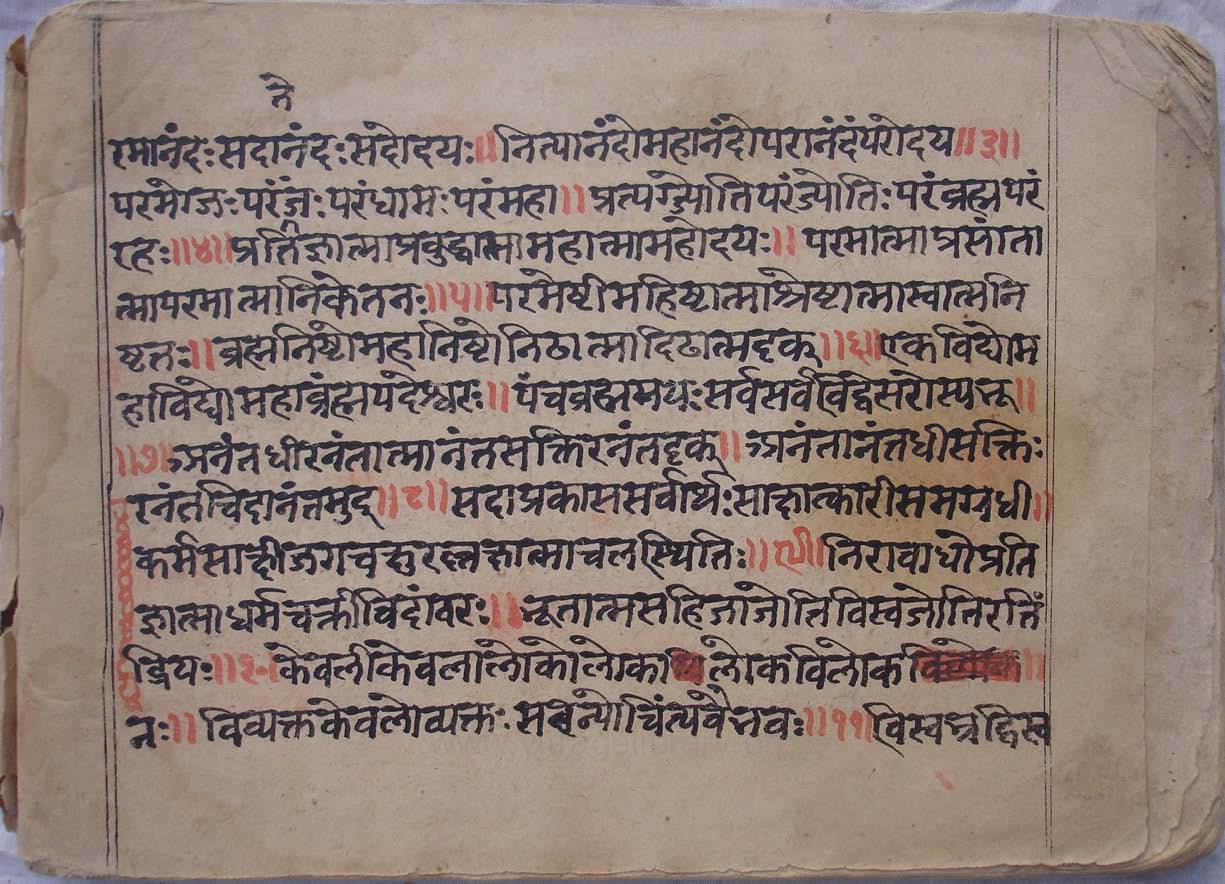 तै
रमानंदः सदानंदः संदोदयः॥ नित्यानंदोमहानंदोपरानंदंपरोदय॥३॥
परंमेग्जः परंजंः परंधामः परंमहा॥ प्रत्यग्ज्योतिपरंज्योतिः परंब्रह्मपरं
रहः॥४॥ प्रर्तिज्ञात्माप्रबुद्धात्मामहात्मामहोदयः॥ परमात्माप्रसांता
त्मापरमात्मानिकेतनः॥५॥ परमेष्टीमहिष्टात्माश्रेष्टात्मास्वात्मनि
ष्टतः॥ ब्रह्मनिष्टोमहानिष्टोनिठात्मादिढात्मदृक्॥६॥ एकविद्योम
हाविद्योमहाब्रंह्मपदेश्वरः॥ पंचब्रह्ममयः सर्वसर्वविद्वेसरोस्यनू॥
॥७॥ अनंतधीरनंतात्मानंतसक्तिरनंतदृक्॥ अनंतानंतधीसक्तिः
रनंतचिदानंतमुद्॥८॥ सदाप्रकाससर्वार्थः साक्षात्कारीसमग्रधी॥
कर्मसाक्षीजगचक्षुरलक्षात्माचलस्थितिः॥९॥ निरावाधोप्रति
क्षात्माधर्मचर्क्रीविदांवरः॥ भूतात्मसहिजांजोतिविस्वजोतिरतिं
द्रियः॥१०॥ केवलीकेवलालोकोलोकालोकविलोक
नः॥ विव्यक्तकेवलोव्यक्तः सरन्योचिंत्यवैभवः॥११॥ विस्वभ्रद्विस्व